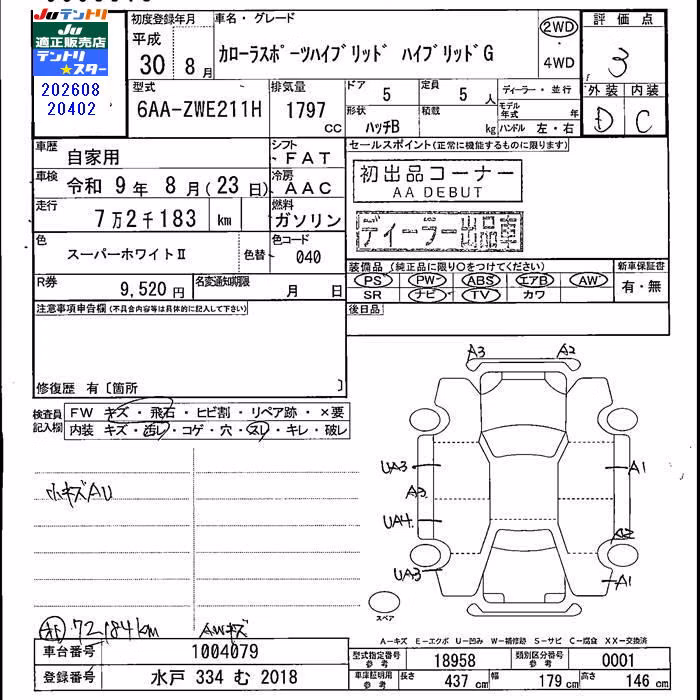 Juテントリ
Ju
適正販売店
テントリ
★スター
202608
20402
初度登録年月
平成
30年 8月
車名・グレード
カローラスポーツハイブリッド ハイブリッドG
2WD
・
4WD
評価点
3
外装 内装
D C
型式
6AA-ZWE211H
排気量
1797
cc
ドア
5
定員
5人
形状
ハッチB
積載
kg
ディーラー・並行
モデル年式 年
ハンドル 左・右
車歴
自家用
シフト
FAT
車検
令和 9年 8月(23日)
冷房
AAC
走行
7万2千183 km
燃料
ガソリン
色
スーパーホワイトⅡ
色替
色コード
040
R券
9,520円
名変通知期限
月 日
セールスポイント(正常に機能するものに限ります)
初出品コーナー
AA DEBUT
ディーラー出品車
装備品(純正品に限り○をつけてください)
PS PW ABS エアB AW
SR ナビ TV カワ
新車保証書
有・無
後日品
注意事項申告欄(不具合内容等は具体的に記入して下さい)
修復歴 有〔箇所 〕
検査員
記入欄
FW キズ・飛石・ヒビ割・リペア跡・×要
内装 キズ・汚レ・コゲ・穴・スレ・キレ・破レ
小キズAU
72,184km
AWキズ
A3 A2
UA3
A3
UA4
UA3
A1
A2
A1
スペア
A-キズ E-エクボ U-凹み W-補修跡 S-サビ C-腐食 XX-交換済
車台番号
1004079
登録番号
水戸 334 む 2018
型式指定番号
参考
18958
類別区分番号
参考
0001
車庫証明用
参考
長さ
437 cm
幅
179 cm
高さ
146 cm